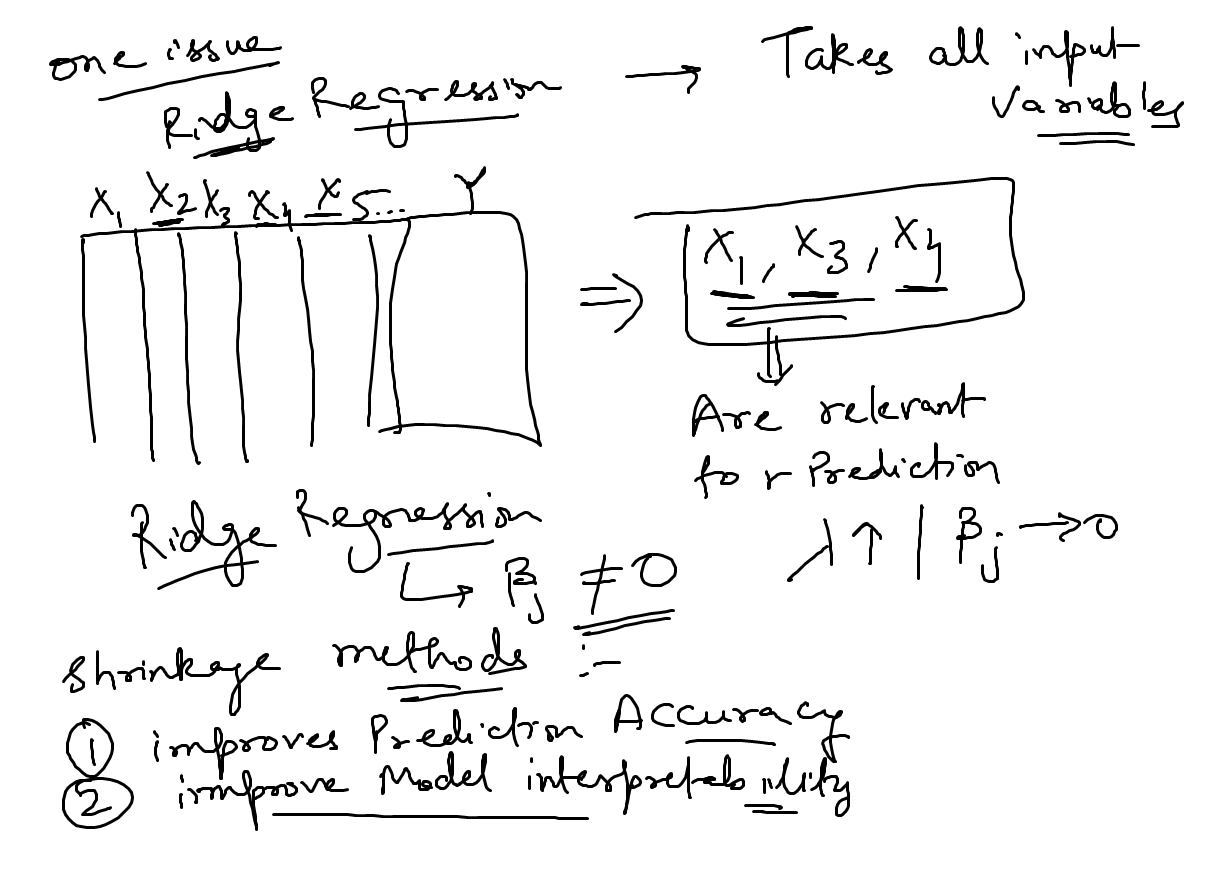 one issue
Ridge Regression → Takes all input
Variables
X1 X2 X3 X4 X5... Y
⇒ X1, X3, X4
⇓
Are relevant
for Prediction
Ridge Regression
↳ βj ≠ 0
λ↑ | βj → 0
Shrinkage methods :-
① improves Prediction Accuracy
② improve Model interpretability